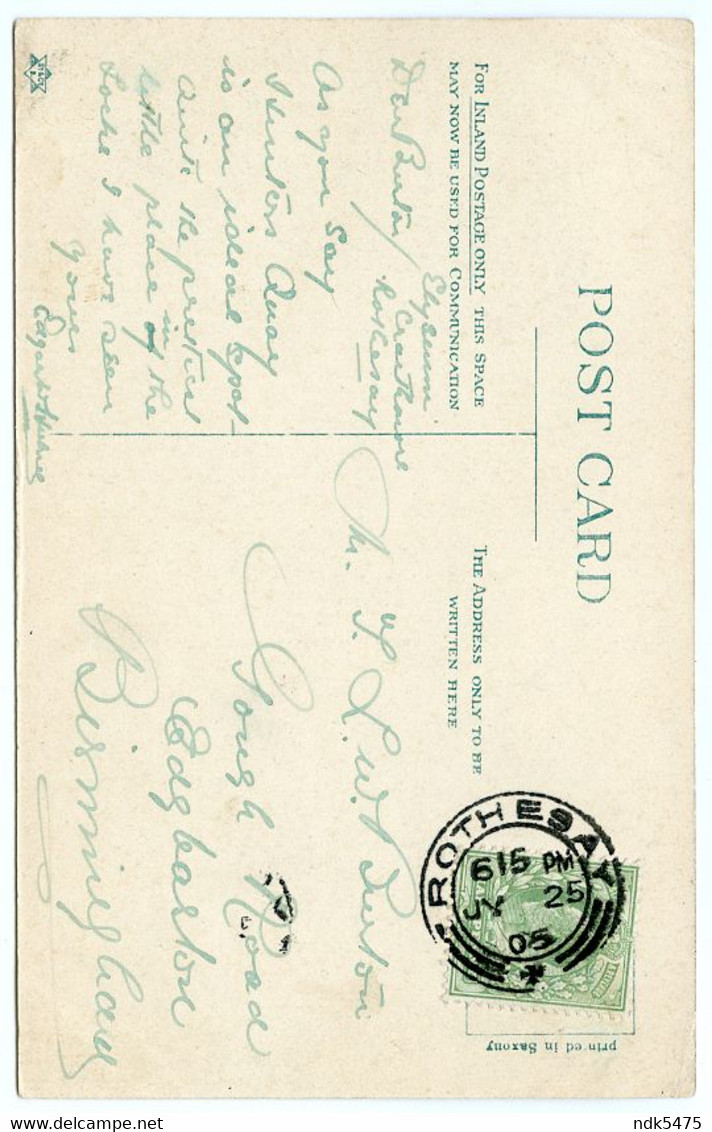 POST CARD
FOR INLAND POSTAGE ONLY THIS SPACE
MAY NOW BE USED FOR COMMUNICATION
THE ADDRESS ONLY TO BE
WRITTEN HERE
Elysium
Craigmore
Rothesay
Dear Burton
As you say
Hunters Quay
is an ideal spot
aint the prettiest
little place in the
Lochs I have seen
Yours
Mr. T. L. W. Burton
Gough Road
Edgbaston
Birmingham
ROTHESAY
615 PM
JY 25
05
printed in Saxony
ndk5475